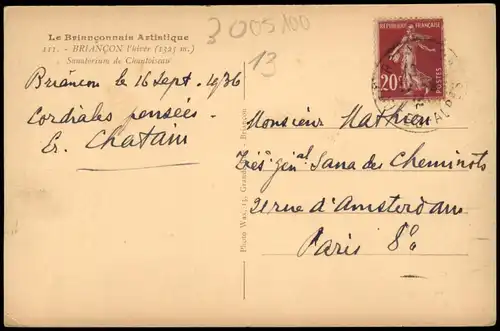 Le Briançonnais Artistique
211. - BRIANÇON l'hiver (1325 m.)
Sanatorium de Chantoiseau
3005100
13
Briançon le 16 Sept. 1936
Cordiales pensées.
Er. Chatain
REPUBLIQUE FRANÇAISE
20c
POSTES
Monsieur Mathieu
Trés. génal Sana des Cheminots
21 rue d'Amsterdam
Paris 8e
Photo Waz, 15, Grande
Briançon